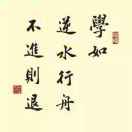 學如
逆水行舟
不進則退